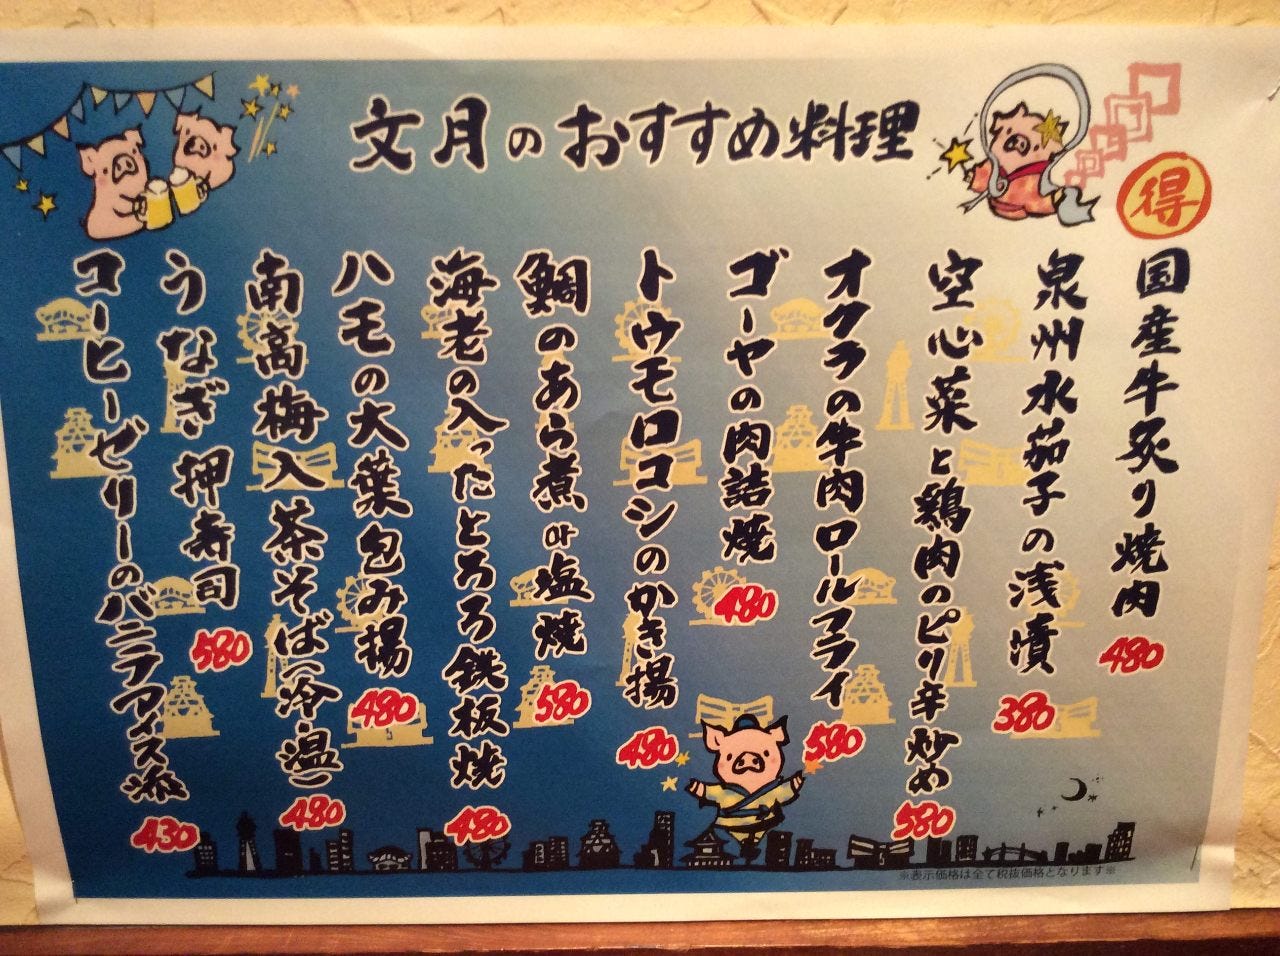 文月のおすすめ料理
得
国産牛炙り焼肉
480
泉州水茄子の浅漬
380
空心菜と鶏肉のピリ辛炒め
580
オクラの牛肉ロールフライ
580
ゴーヤの肉詰焼
480
トウモロコシのかき揚
480
鯛のあら煮or塩焼
580
海老の入ったとろろ鉄板焼
480
ハモの大葉包み揚
480
南高梅入茶そば(冷・温)
480
うなぎ押寿司
580
コーヒーゼリーのバニラアイス添
430
※表示価格は全て税抜価格となります※